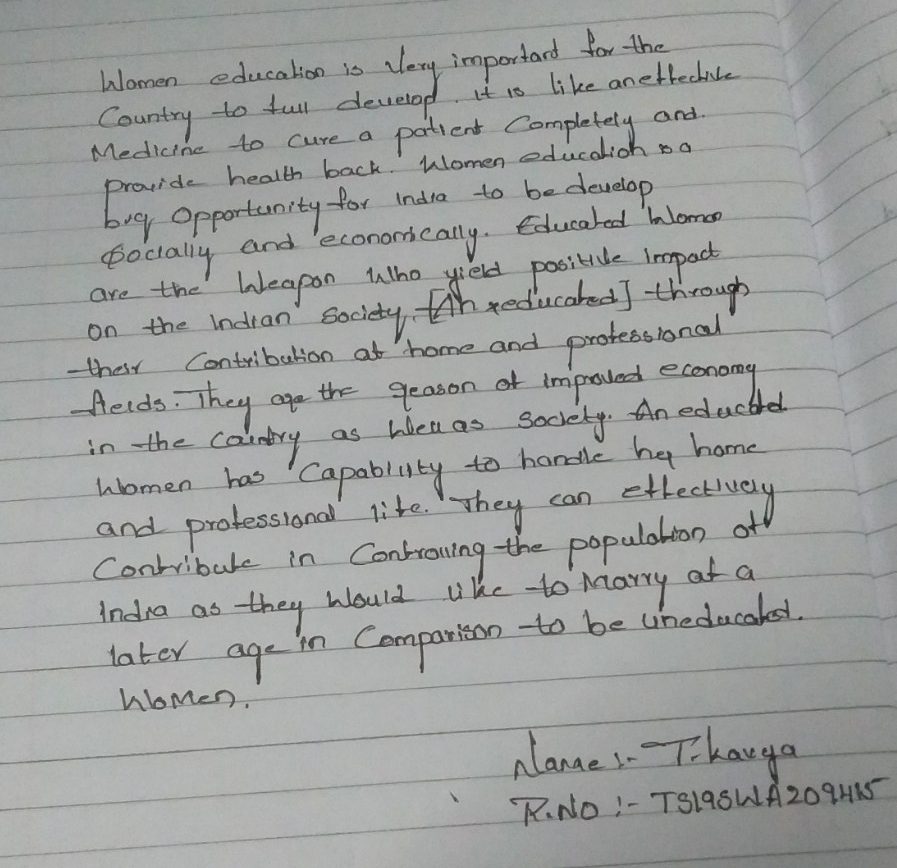 Women education is Very important for the
Country to full develop. it is like an effective
Medicine to cure a patient Completely and.
provide health back. Women education is a
big Opportunity for India to be develop
Socially and economically. Educated Women
are the Weapon Who yield positive impact
on the Indian Society, [An educated] through
their Contribution at home and professional
fields. They are the reason of improved economy
in the country as well as Society. An educated
Women has Capability to handle her home
and professional life. They can effectively
Contribute in Controlling the population of
India as they Would like to Marry at a
later age in Comparison to be uneducated.
Women.
Name :- T. kavya
R.No :- TS19SWA209415